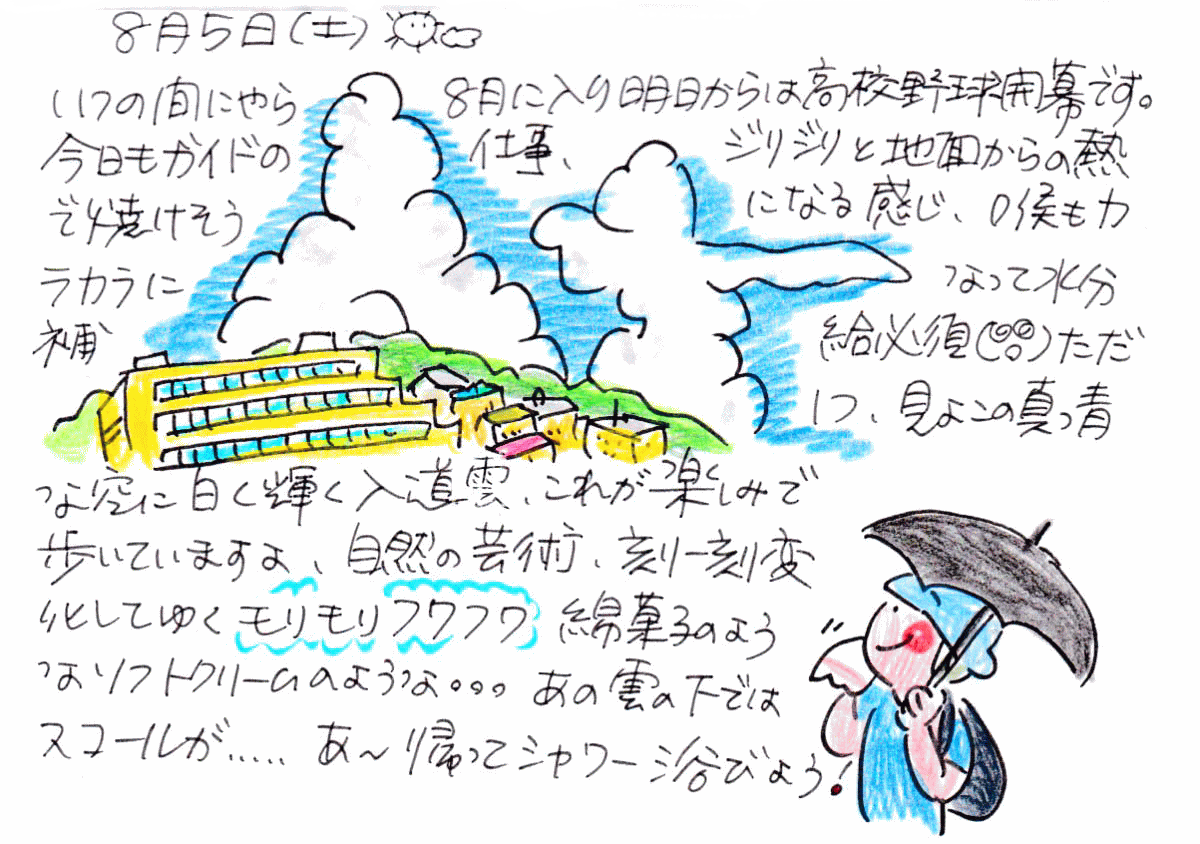 8月5日(土)
いつの間にやら 8月に入り明日からは高校野球開幕です。
今日もガイドの 仕事、 ジリジリと地面からの熱
で焼けそう になる感じ、喉もカ
ラカラに なって水分
補 給必須()ただ
1つ、見よこの真っ青
な空に白く輝く入道雲、これが楽しみで
歩いていますよ、自然の芸術、刻一刻変
化してゆくモリモリフワフワ 綿菓子のよう
なソフトクリームのような。。。あの雲の下では
スコールが..... あ〜帰ってシャワー浴びよう!